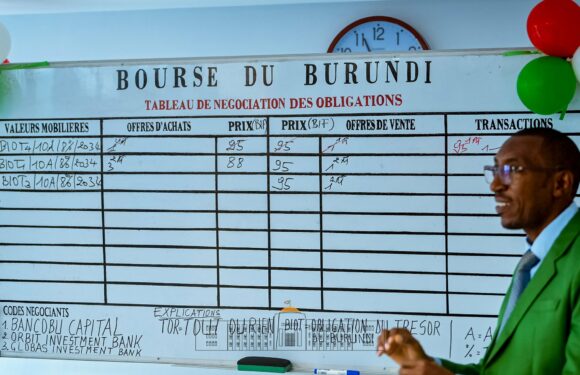 BOURSE DU BURUNDI
TABLEAU DE NEGOCIATION DES OBLIGATIONS
VALEURS MOBILIERES OFFRES D'ACHATS PRIX (BIF) PRIX (BIF) OFFRES DE VENTE TRANSACTIONS
10A/8%/2034 95 95 95
BIOT1/10A/8%/2034 88 95
/10A/8%/2034 95
CODES NEGOCIANTS
1. BANCOBU CAPITAL
2. ORBIT INVESTMENT BANK
3. GLOBAS INVESTMENT BANK
EXPLICATIONS
BIOT = OBLIGATION DU TRESOR
DU BURUNDI
A =
%